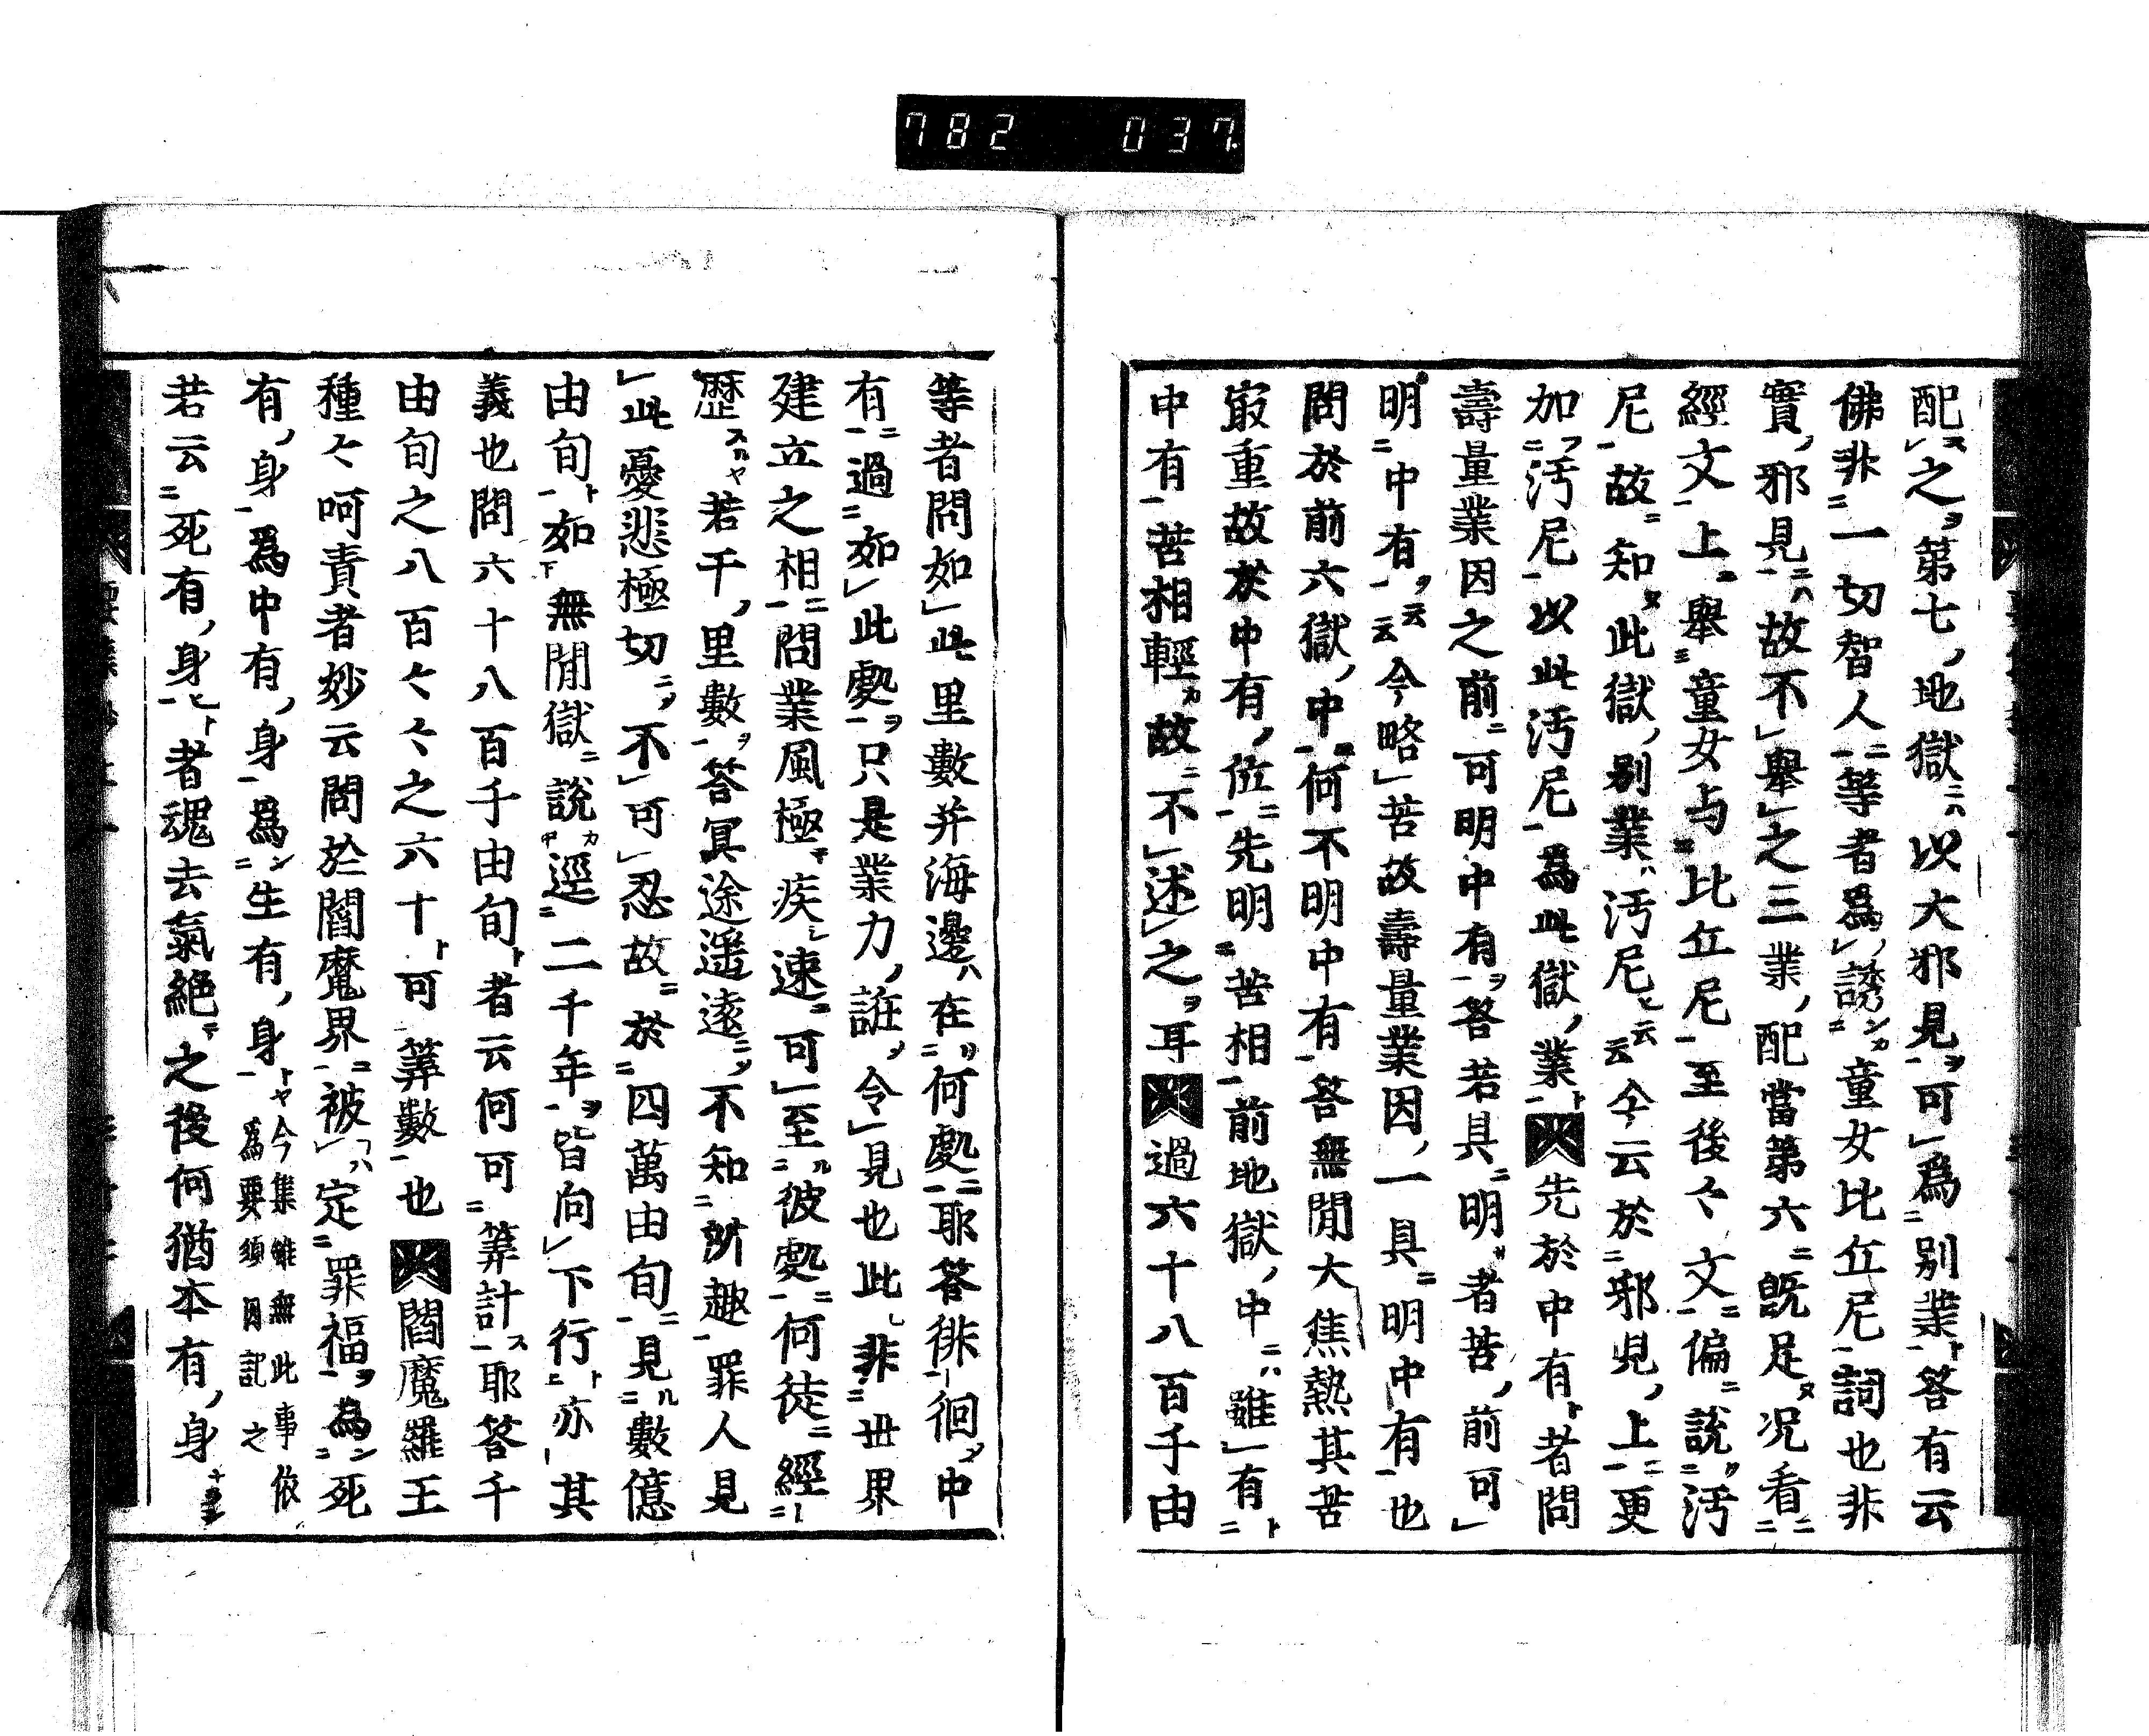 782 037
配之第七地獄以大邪見可為別業答有云
佛非一切智人等者為誘童女比丘尼詞也非
實邪見故不舉之三業配當第六既足况看
經文上舉童女与比丘尼至後々文偏說汚
尼故知此獄別業汚尼云云今云於邪見上更
加汚尼以此汚尼為此獄業先於中有者問
壽量業因之前可明中有答若具明者苦前可
明中有云云今略苦故壽量業因一具明中有也
問於前六獄中何不明中有答無間大焦熱其苦
㝡重故於中有位先明苦相前地獄中雖有
中有苦相輕故不述之耳過六十八百千由
等者問如此里數并海邊在何處耶答徘徊中
有過如此處只是業力誑令見也此非世界
建立之相問業風極疾速可至彼處何徒經
歷若干里數答冥途遥遠不知所趣罪人見
此憂悲極切不可忍故於四萬由旬見數億
由旬如無間獄說逕二千年皆向下行亦其
義也問六十八百千由旬者云何可筭計耶答千
由旬之八百々々之六十可筭數也閻魔羅王
種々呵責者妙云問於閻魔界被定罪福為死
有身為中有身為生有身今集雖無此事依
為要須因記之
若云死有身者魂去氣絶之後何猶本有身